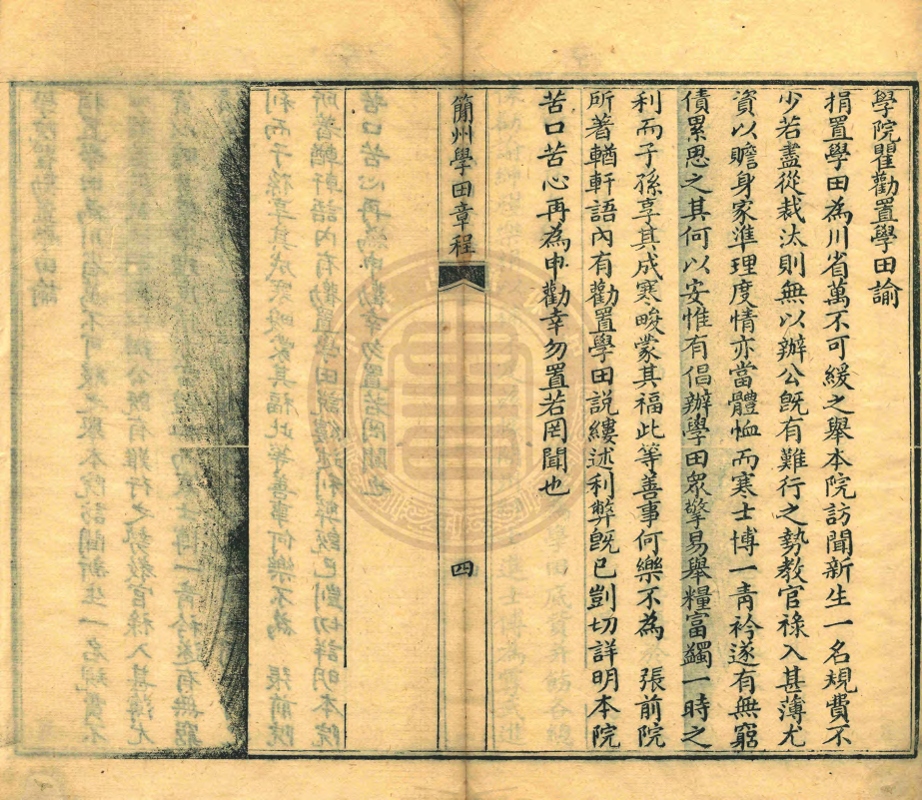 學院瞿勸置學田諭
捐置學田為川省萬不可緩之舉本院訪聞新生一名規費不
少若盡從裁汰則無以辦公旣有難行之勢教官祿入甚薄尤
資以贍身家準理度情亦當體恤而寒士博一青衿遂有無窮
債累思之其何以安惟有倡辦學田眾擎易舉糧富蠲一時之
利而子孫享其成寒畯蒙其福此等善事何樂不為　張前院
所著輶軒語內有勸置學田説縷述利弊旣已剴切詳明本院
苦口苦心再為申勸幸勿置若罔聞也
簡州學田章程
四